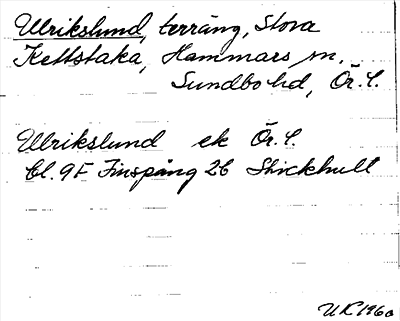 Ulrikslund, terräng, Stora
Kettstaka, Hammars sn,
Sundbo hd, Ör. l.
Ulrikslund ek Ör. l.
bl. 9F Finspång 2b Skickhult
UK 1960